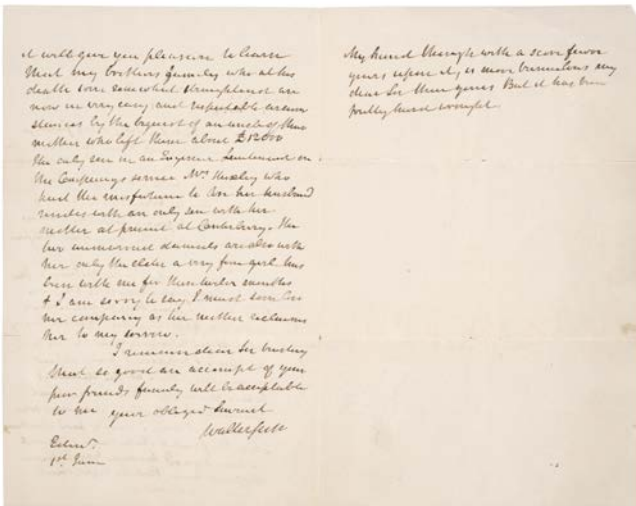 it will give you pleasure to learn
that my brothers family who at his
death were somewhat straightend are
now in very easy and respectable circum
stances by the bequest of an uncle of their
mother who left them about £12000
the only son is an Engineer Lieutenant in
the Companys service Mrs Huxley who
had the misfortune to lose her husband
resides with an only son with her
mother at present at Canterbury. The
two unmarried damsels are also with
her only the elder a very fine girl has
been with me for these twelve months
& I am sorry to say I must soon lose
her company as her mother reclaims
her to my sorrow.
I remain dear Sir trusting
that so good an account of your
poor friends family will be acceptable
to me your obliged Servant
Walter Scott
Edinr.
1st June
My hand though with a score fewer
years upon it, is more tremulous my
dear Sir than yours But it has been
pretty hard wrought.